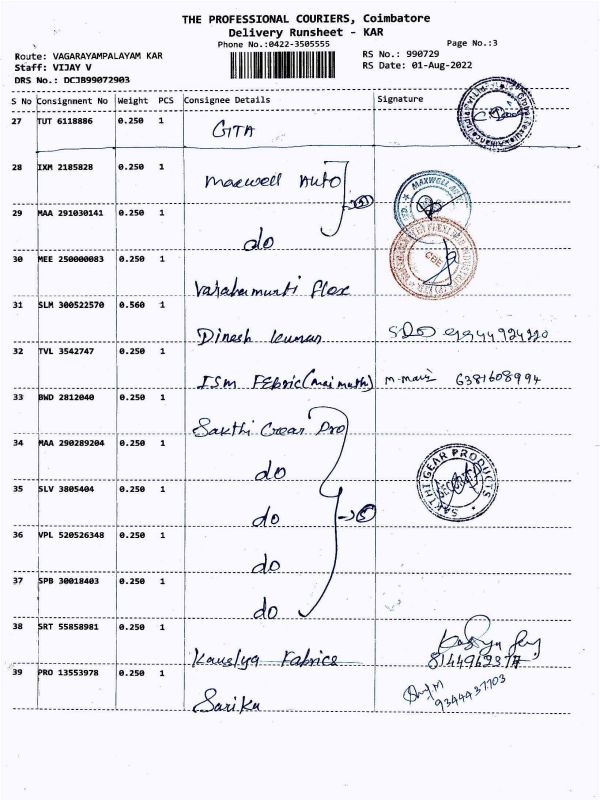 THE PROFESSIONAL COURIERS, Coimbatore
Delivery Runsheet - KAR
Phone No.:0422-3505555
Page No.:3
Route: VAGARAYAMPALAYAM KAR
RS No.: 990729
Staff: VIJAY V
RS Date: 01-Aug-2022
DRS No.: DCJB99072903
S No Consignment No Weight PCS Consignee Details Signature
27 TUT 6118886 0.250 1
GITA
28 IXM 2185828 0.250 1
Maxwell Auto
MAXWELL
29 MAA 291030141 0.250 1
do
30 MEE 250000083 0.250 1
CBE
Varahamurti Flex
31 SLM 300522570 0.560 1
Dinesh Kumar
32 TVL 3542747 0.250 1
ISM Febric (Marimuth) 6381608994
33 BWD 2812040 0.250 1
Sakthi Gear Pro
34 MAA 290289204 0.250 1
do
SAKTHI GEAR PRODUCTS
35 SLV 3805404 0.250 1
do
5
36 VPL 520526348 0.250 1
do
37 SPB 30018403 0.250 1
do
38 SRT 55858981 0.250 1
Kauslya Fabrics
39 PRO 13553978 0.250 1
9344437703
Sarika